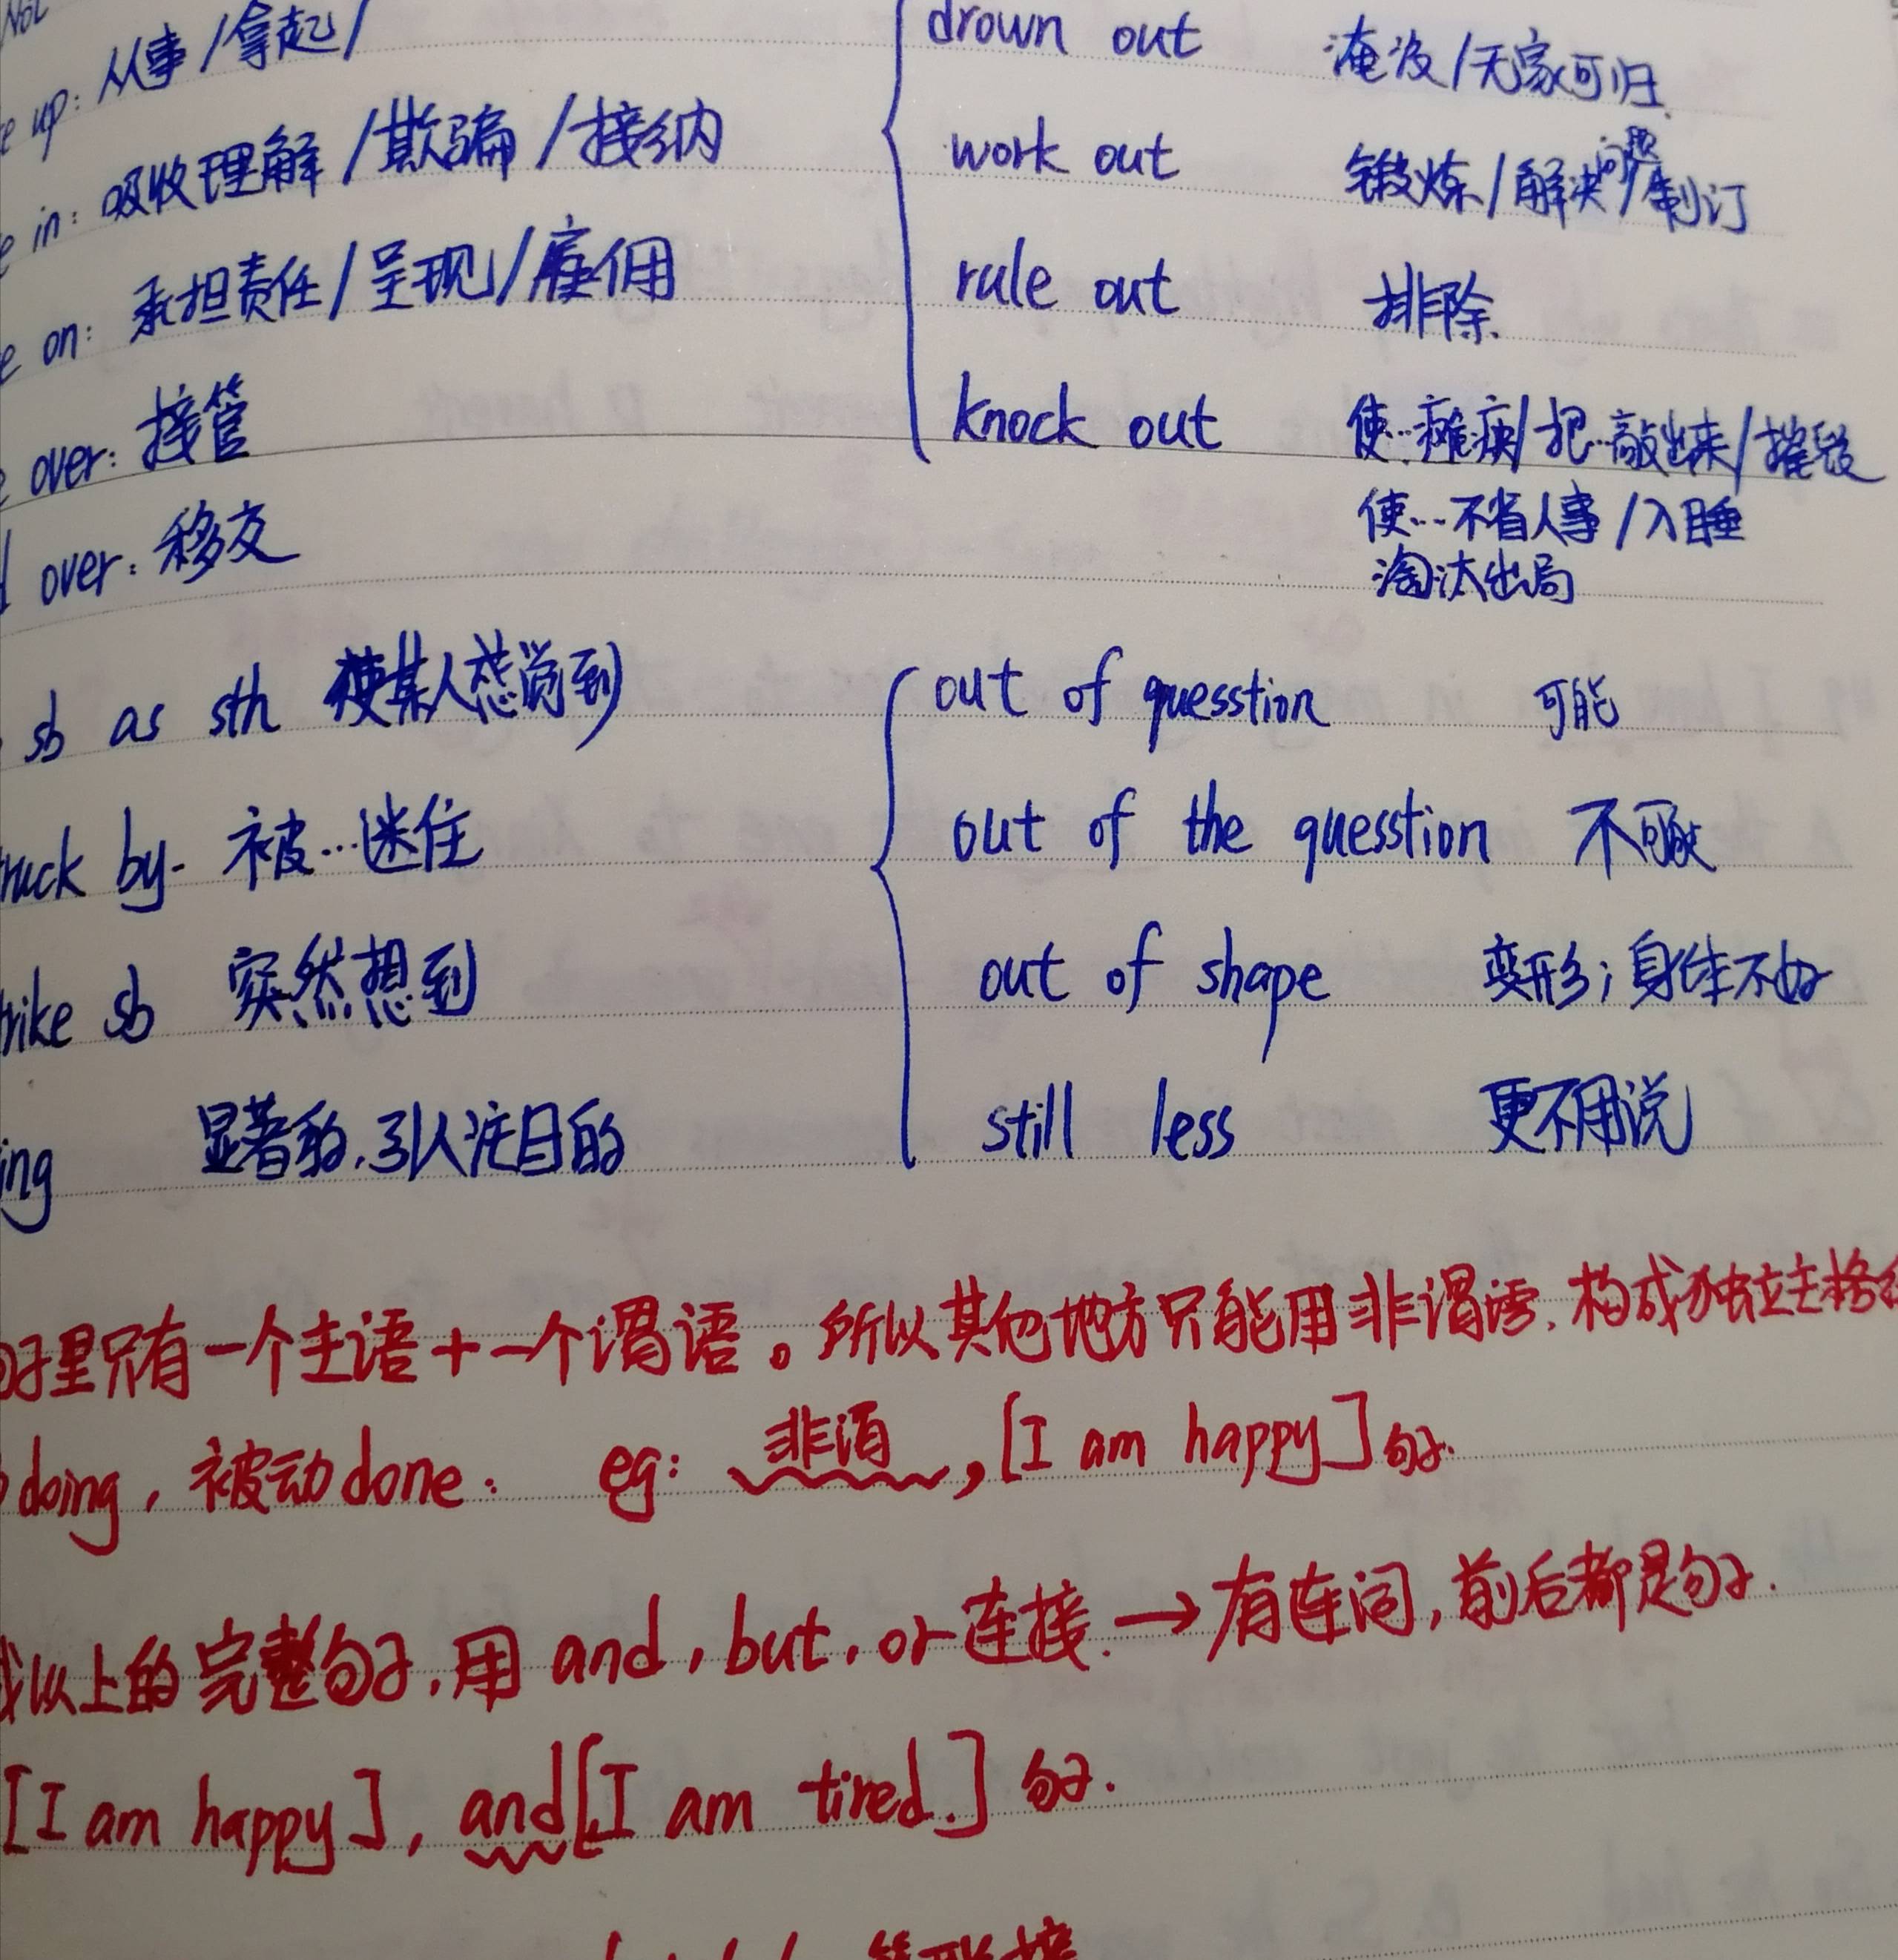 up: 从事/拿起/
in: 吸收理解/欺骗/接纳
on: 承担责任/呈现/雇佣
over: 接管
over: 移交
sb as sth 使某人感觉到
by 被…迷住
sb 突然想到
ing 显著的,引人注目的
drown out 淹没/无家可归
work out 锻炼/解决问题/制订
rule out 排除
knock out 使…瘫痪/把…敲出来/摧毁
使…不省人事/入睡
淘汰出局
out of quesstion 可能
out of the quesstion 不可能
out of shape 变形;身体不好
still less 更不用说
子里只有一个主语+一个谓语。所以其他地方只能用非谓语,构成独立主格
doing,被动done. eg: 非谓,[I am happy]句子.
或以上的完整句子,用 and, but, or 连接.→有连词,前后都是句子.
[I am happy], and [I am tired.] 句子.